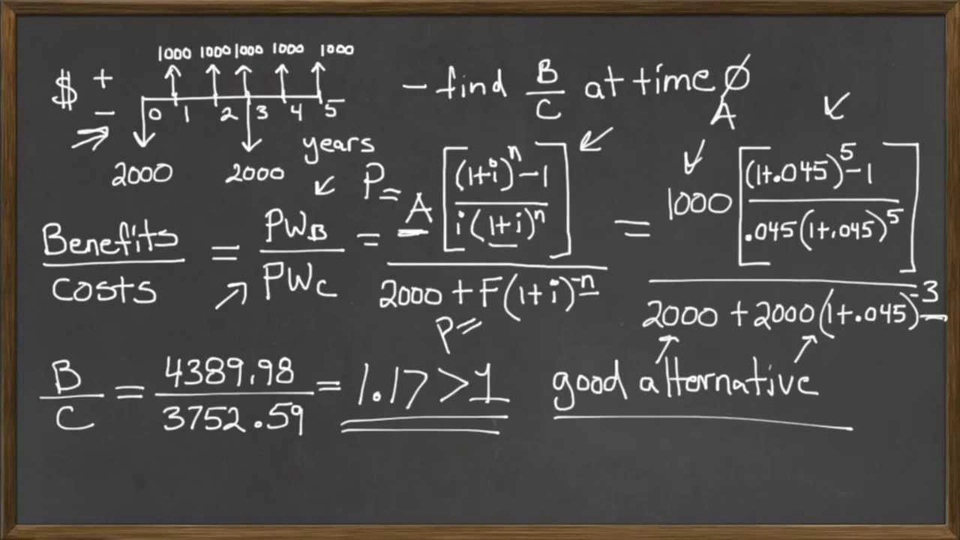 1000 1000 1000 1000 1000
$ + −
0 1 2 3 4 5
2000 2000 years
– find B/C at time 0
Benefits/Costs = PW_B/PW_C = P= A[((1+i)^n − 1)/(i(1+i)^n)] / (2000 + F(1+i)^-n) = A 1000[((1+.045)^5 − 1)/(.045(1+.045)^5)] / (2000 + 2000(1+.045)^-3)
P=
B/C = 4389.98/3752.59 = 1.17 > 1 good alternative